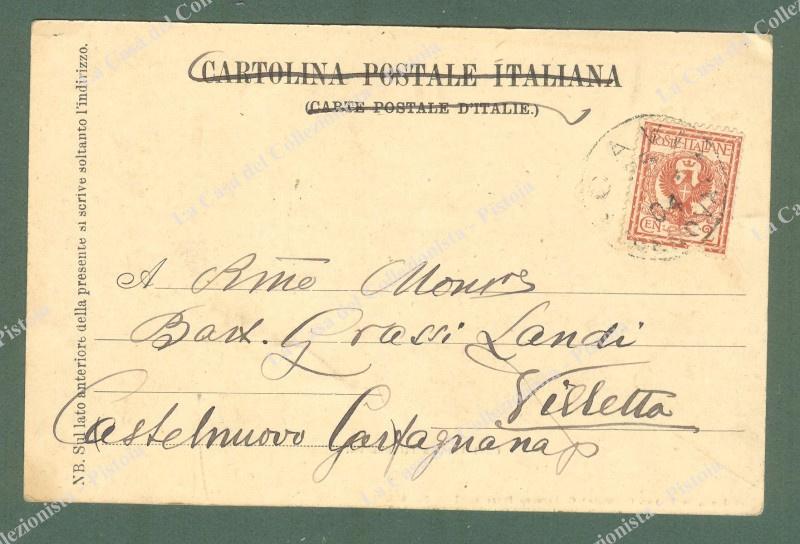 CARTOLINA POSTALE ITALIANA
(CARTE POSTALE D'ITALIE.)
NB. Sul lato anteriore della presente si scrive soltanto l'indirizzo.
POSTE ITALIANE
CENT. 2
04
A Rmo Monsr
Bart. Grassi Landi
Villetta
Castelnuovo Garfagnana
La Casa del Collezionista - Pistoia